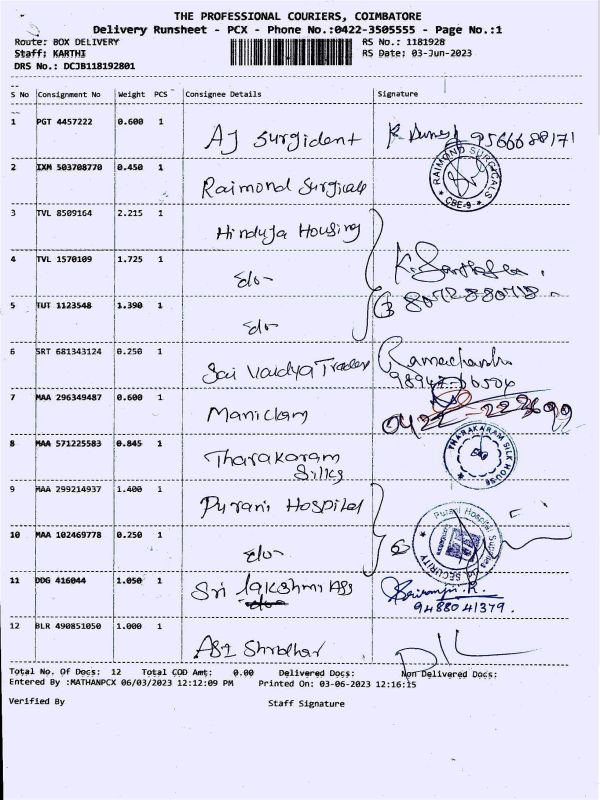 THE PROFESSIONAL COURIERS, COIMBATORE
Delivery Runsheet - PCX - Phone No.:0422-3505555 - Page No.:1
Route: BOX DELIVERY RS No.: 1181928
Staff: KARTHI RS Date: 03-Jun-2023
DRS No.: DCJB118192801
S No Consignment No Weight PCS Consignee Details Signature
1 PGT 4457222 0.600 1 AJ Surgident
2 IXM 503708770 0.450 1 Raimond Surgicals RAIMOND SURGICALS CBE-9
3 TVL 8509164 2.215 1 Hinduja Housing
4 TVL 1570109 1.725 1 do-
5 TUT 1123548 1.390 1 do- 3
6 SRT 681343124 0.250 1 Sai Vaidya Traders
7 MAA 296349487 0.600 1 Manickam
8 MAA 571225583 0.845 1 Tharakaram Silks THARAKARAM SILK HOUSE
9 MAA 299214937 1.400 1 Purani Hospital
10 MAA 102469778 0.250 1 do- Purani Hospital Supplies SECURITY
11 DDG 416044 1.050 1 Sri Lakshmi Ass 9488041379.
12 BLR 490851050 1.000 1 Shridhar
Total No. Of Docs: 12 Total COD Amt: 0.00 Delivered Docs: Non Delivered Docs:
Entered By :MATHANPCX 06/03/2023 12:12:09 PM Printed On: 03-06-2023 12:16:15
Verified By Staff Signature